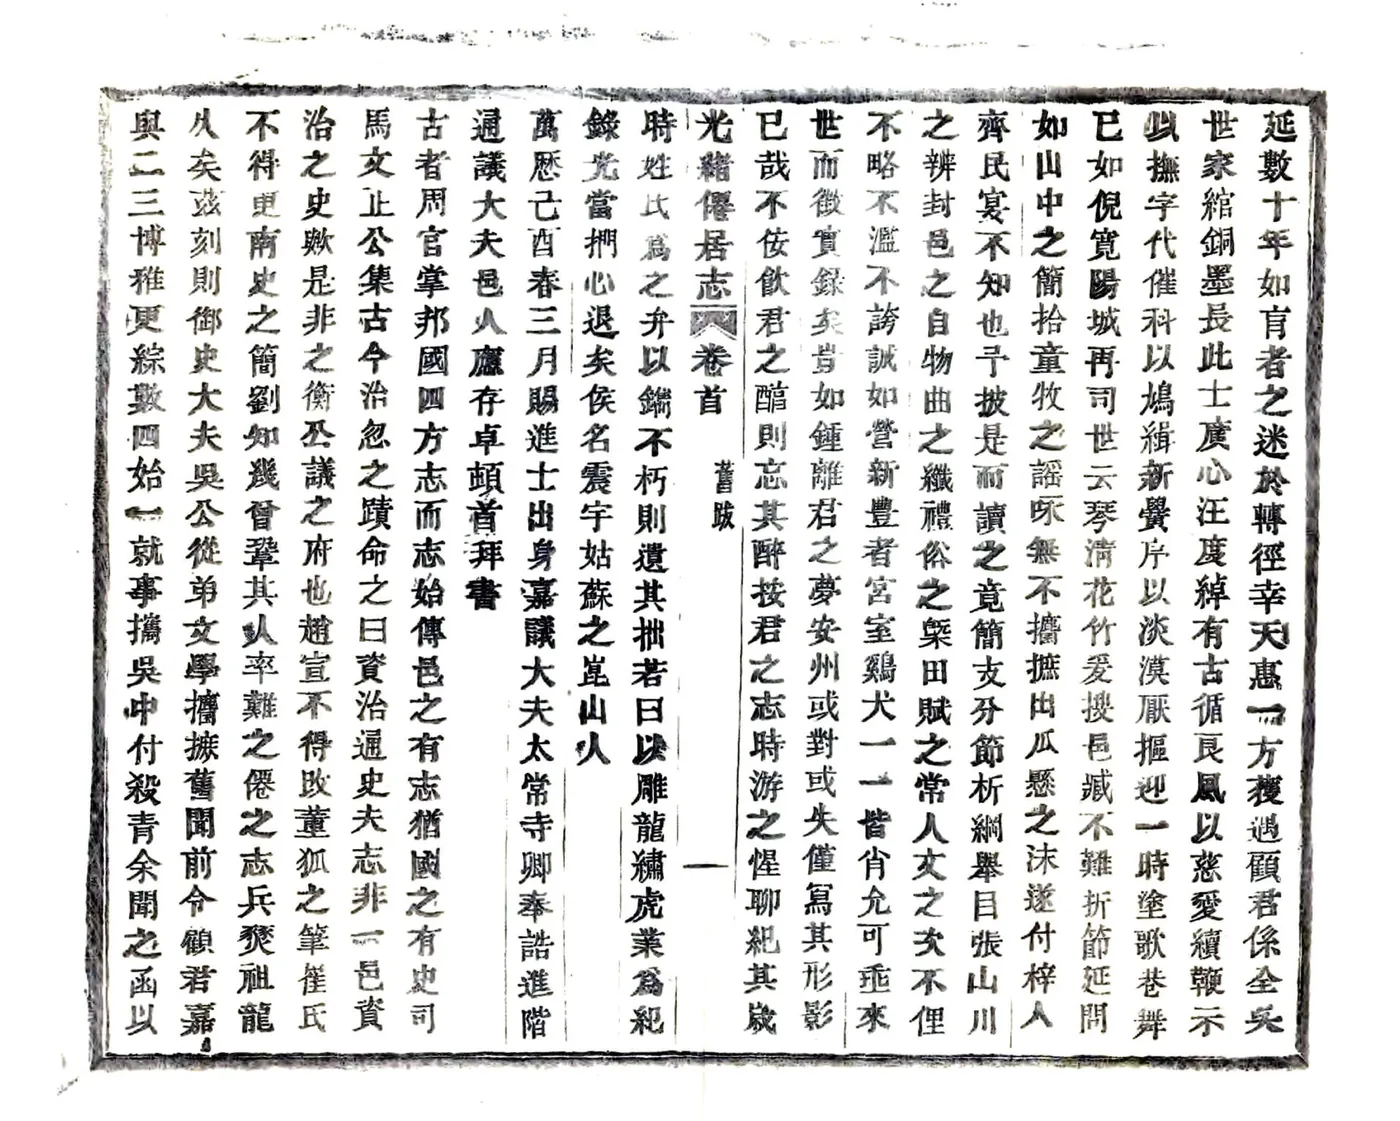 延數十年如盲者之迷於轉徑幸天惠一方獲遇顧君係全吳
世家綰銅墨長此士廣心汪度綽有古循良風以慈愛續鞭示
以撫字代催科以鳩緝新黌序以淡漠厭摳迎一時塗歌巷舞
已如倪寬陽城再司世云琴淸花竹爰搜邑臧不難折節延問
如山中之簡拾童牧之謡咏無不擣摭出瓜懸之沫遂付梓人
齊民宴不知也予披是而讀之竟簡支分節析綱舉目張山川
之辨封邑之自物曲之纖禮俗之槩田賦之常人文之次不俚
不略不濫不誇誠如營新豐者宮室鷄犬一一皆肖允可垂來
世而徵實錄矣豈如鍾離君之夢安州或對或失僅寫其形影
已哉不佞飲君之醕則忘其醉按君之志時游之惺聊紀其歲
光緒僊居志 卷首 舊跋 一
時姓氏爲之弁以鐫不朽則遺其拙若曰以雕龍繡虎業爲紀
錄尤當捫心退矣侯名震宇姑蘇之崑山人
萬厯己酉春三月賜進士出身嘉議大夫太常寺卿奉誥進階
通議大夫邑人應存卓頓首拜書
古者周官掌邦國四方志而志始傳邑之有志猶國之有史司
馬文正公集古今治忽之蹟命之曰資治通史夫志非一邑資
治之史歟是非之衡公議之府也趙宣不得改董狐之筆崔氏
不得更南史之簡劉知幾曾鞏其人率難之僊之志兵燹祖龍
久矣茲刻則御史大夫吳公從弟文學擣摭舊聞前令顧君嘉
與二三博雅更綜數四始一就事攜吳中付殺青余聞之函以